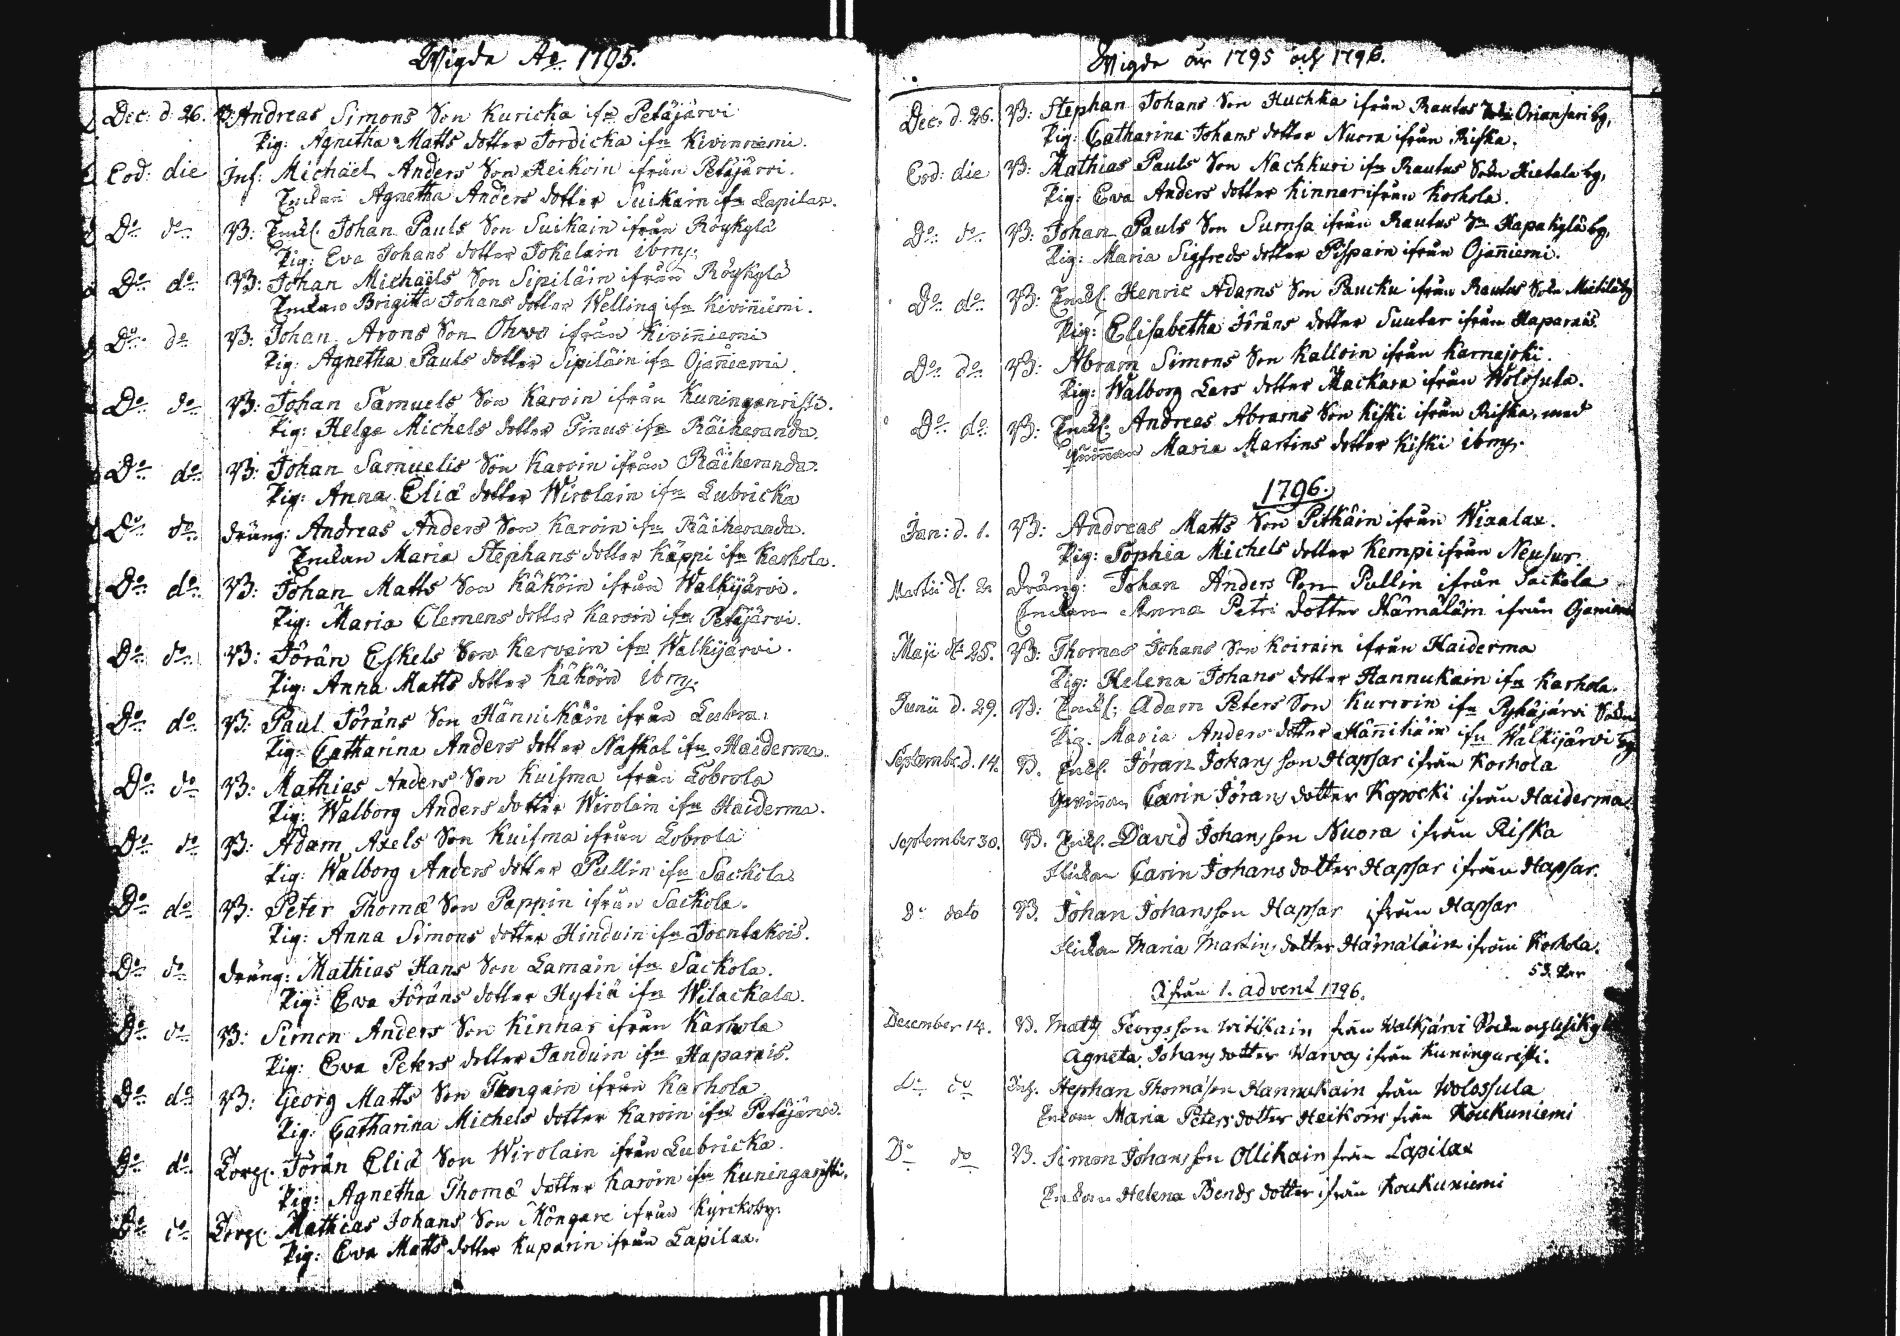 Wigda Ao 1795.
Dec: d. 26. B: Andreas Simons Son Kuricka ifrn Petäjärvi
Pig: Agnetha Matts dotter Jordicka ifrn Kivinniemi.
Eod: die Inh: Michäel Anders Son Reikoin ifrån Petäjärvi.
Enkan Agnetha Anders dotter Suikain ifrn Lapilax.
Do do B: Enkl. Johan Pauls Son Suikain ifrån Röykylä
Pig: Eva Johans dotter Jokelain ibm:
Do do B: Johan Michäels Son Sipiläin ifrån Röykylä
Enkan Brigitta Johans dotter Welling ifrn Kivinniemi.
Do do B: Johan Arons Son Ohvo ifrån Kivinniemi
Pig: Agnetha Pauls dotter Sipiläin ifrn Ojanniemi.
Do do B: Johan Samuels Son Karvin ifrån Kuninganristi.
Pig: Helga Michels dotter Tinus ifrn Räiheranda.
Do do B: Johan Samuelis Son Karvin ifrån Räiheranda.
Pig: Anna Eliä dotter Wirolain ifrn Lubricka
Do do dräng: Andreas Anders Son Karvin ifrn Räiheranda.
Enkan Maria Stephans dotter Käppi ifrn Karhola.
Do do B: Johan Matts Son Käköin ifrån Walkijärvi.
Pig: Maria Clemens dotter Karvin ifrn Petäjärvi.
Do do B: Jöran Eskels Son Karvain ifrn Walkijärvi.
Pig: Anna Matts dotter Käköin ibm:
Do do B: Paul Jörans Son Hännikäin ifrån
Pig: Catharina Anders dotter Naskal ifrn Haiderma.
Do do B: Mathias Anders Son Kuisma ifrån Lobrola
Pig: Walborg Anders dotter Wirolain ifrn Haiderma.
Do do B: Adam Axels Son Kuisma ifrån Lobrola
Pig: Walborg Anders dotter Pullin ifrn Sackola
Do do B: Peter Thomä Son Pappin ifrån Sackola.
Pig: Anna Simons dotter Hinduin ifrn
Do do dräng: Mathias Hans Son Lamain ifrn Sackola.
Pig: Eva Jörans dotter Hytiä ifrn Wilackala.
Do do B: Simon Anders Son Kinnar ifrån Karhola
Pig: Eva Peters dotter Tanduin ifrn Haparais.
Do do B: Georg Matts Son Tengain ifrån Karhola
Pig: Catharina Michels dotter Karvin ifrn Petäjärvi.
Do do Jöran Eliä Son Wirolain ifrån Lubricka.
Pig: Agnetha Thomä dotter Karvin ifrn Kuningaristi.
Do do Mathias Johans Son Möngare ifrån Kyrckoby.
Pig: Eva Matts dotter Kuparin ifrån Lapilax.
Wigde år 1795 och 1796.
Dec: d. 26. B: Stephan Johans Son Huchka ifrån Rautus Sokn Oriansari by.
Pig: Catharina Johans dotter Nuora ifrån Riska.
Eod: die B: Mathias Pauls Son Nachkuri ifrn Rautus Sokn Hietala by.
Pig: Eva Anders dotter Kinnar ifrån Korhola.
Do do B: Johan Pauls Son Sumsa ifrån Rautus Sn Hapakylä by.
Pig: Maria Sigfreds dotter Pispain ifrån Ojanniemi.
Do do B: Enkl. Henric Adams Son Paucku ifrån Rautus Sokn
Pig: Elisabetha Jörans dotter Suutar ifrån Haparais.
Do do B: Abram Simons Son Kalloin ifrån Karnajoki.
Pig: Walborg Lars dotter Mackara ifrån Wolosula.
Do do B: Enkl. Andreas Abrams Son Kiski ifrån Riska, med
Maria Martins dotter Kiski ibm:
1796.
Jan: d. 1. B: Andreas Matts Son Pitkäin ifrån Wixalax.
Pig: Sophia Michels dotter Kempi ifrån Neusur.
Martii d. 2n dräng: Johan Anders Son Pullin ifrån Sackola
Enkan Anna Petri dotter Hämäläin ifrån Ojaniemi
Maji d. 25. B: Thomas Johans Son Koirain ifrån Haiderma
Pig: Helena Johans dotter Hannukain ifrn Karhola.
Junii d. 29. B: Enkl: Adam Peters Son Kurvin ifrn Pyhäjärvi Sokn
Pig. Maria Anders dotter Männikäin ifrn Walkijärvi by
Septembr. d. 14. B. Enkl. Jöran Johans son Hapsar ifrån Korhola
Qvinnan Carin Jörans dotter Kopocki ifrån Haiderma.
September 30. B. Enkl. David Johans son Nuora ifrån Riska
Flickan Carin Johans dotter Hapsar ifrån Hapsar.
Do dato B. Johan Johansson Hapsar ifrån Hapsar
Flickan Maria Martins dotter Hämäläin ifrån Korhola.
53. Par
Ifrån 1. advent 1796.
December 14. B. Matts Georgsson Witikain från Walkjärvi Sokn
Agneta Johans dotter Warvas ifrån Kuninguristi.
Do do Inh. Stephan Thomason Hannukain från Wolossula
Enkan Maria Peters dotter Heikoin från Koukuniemi
Do do B. Simon Johans son Ollikain från Lapilax
Enkan Helena Bends dotter ifrån Koukuniemi